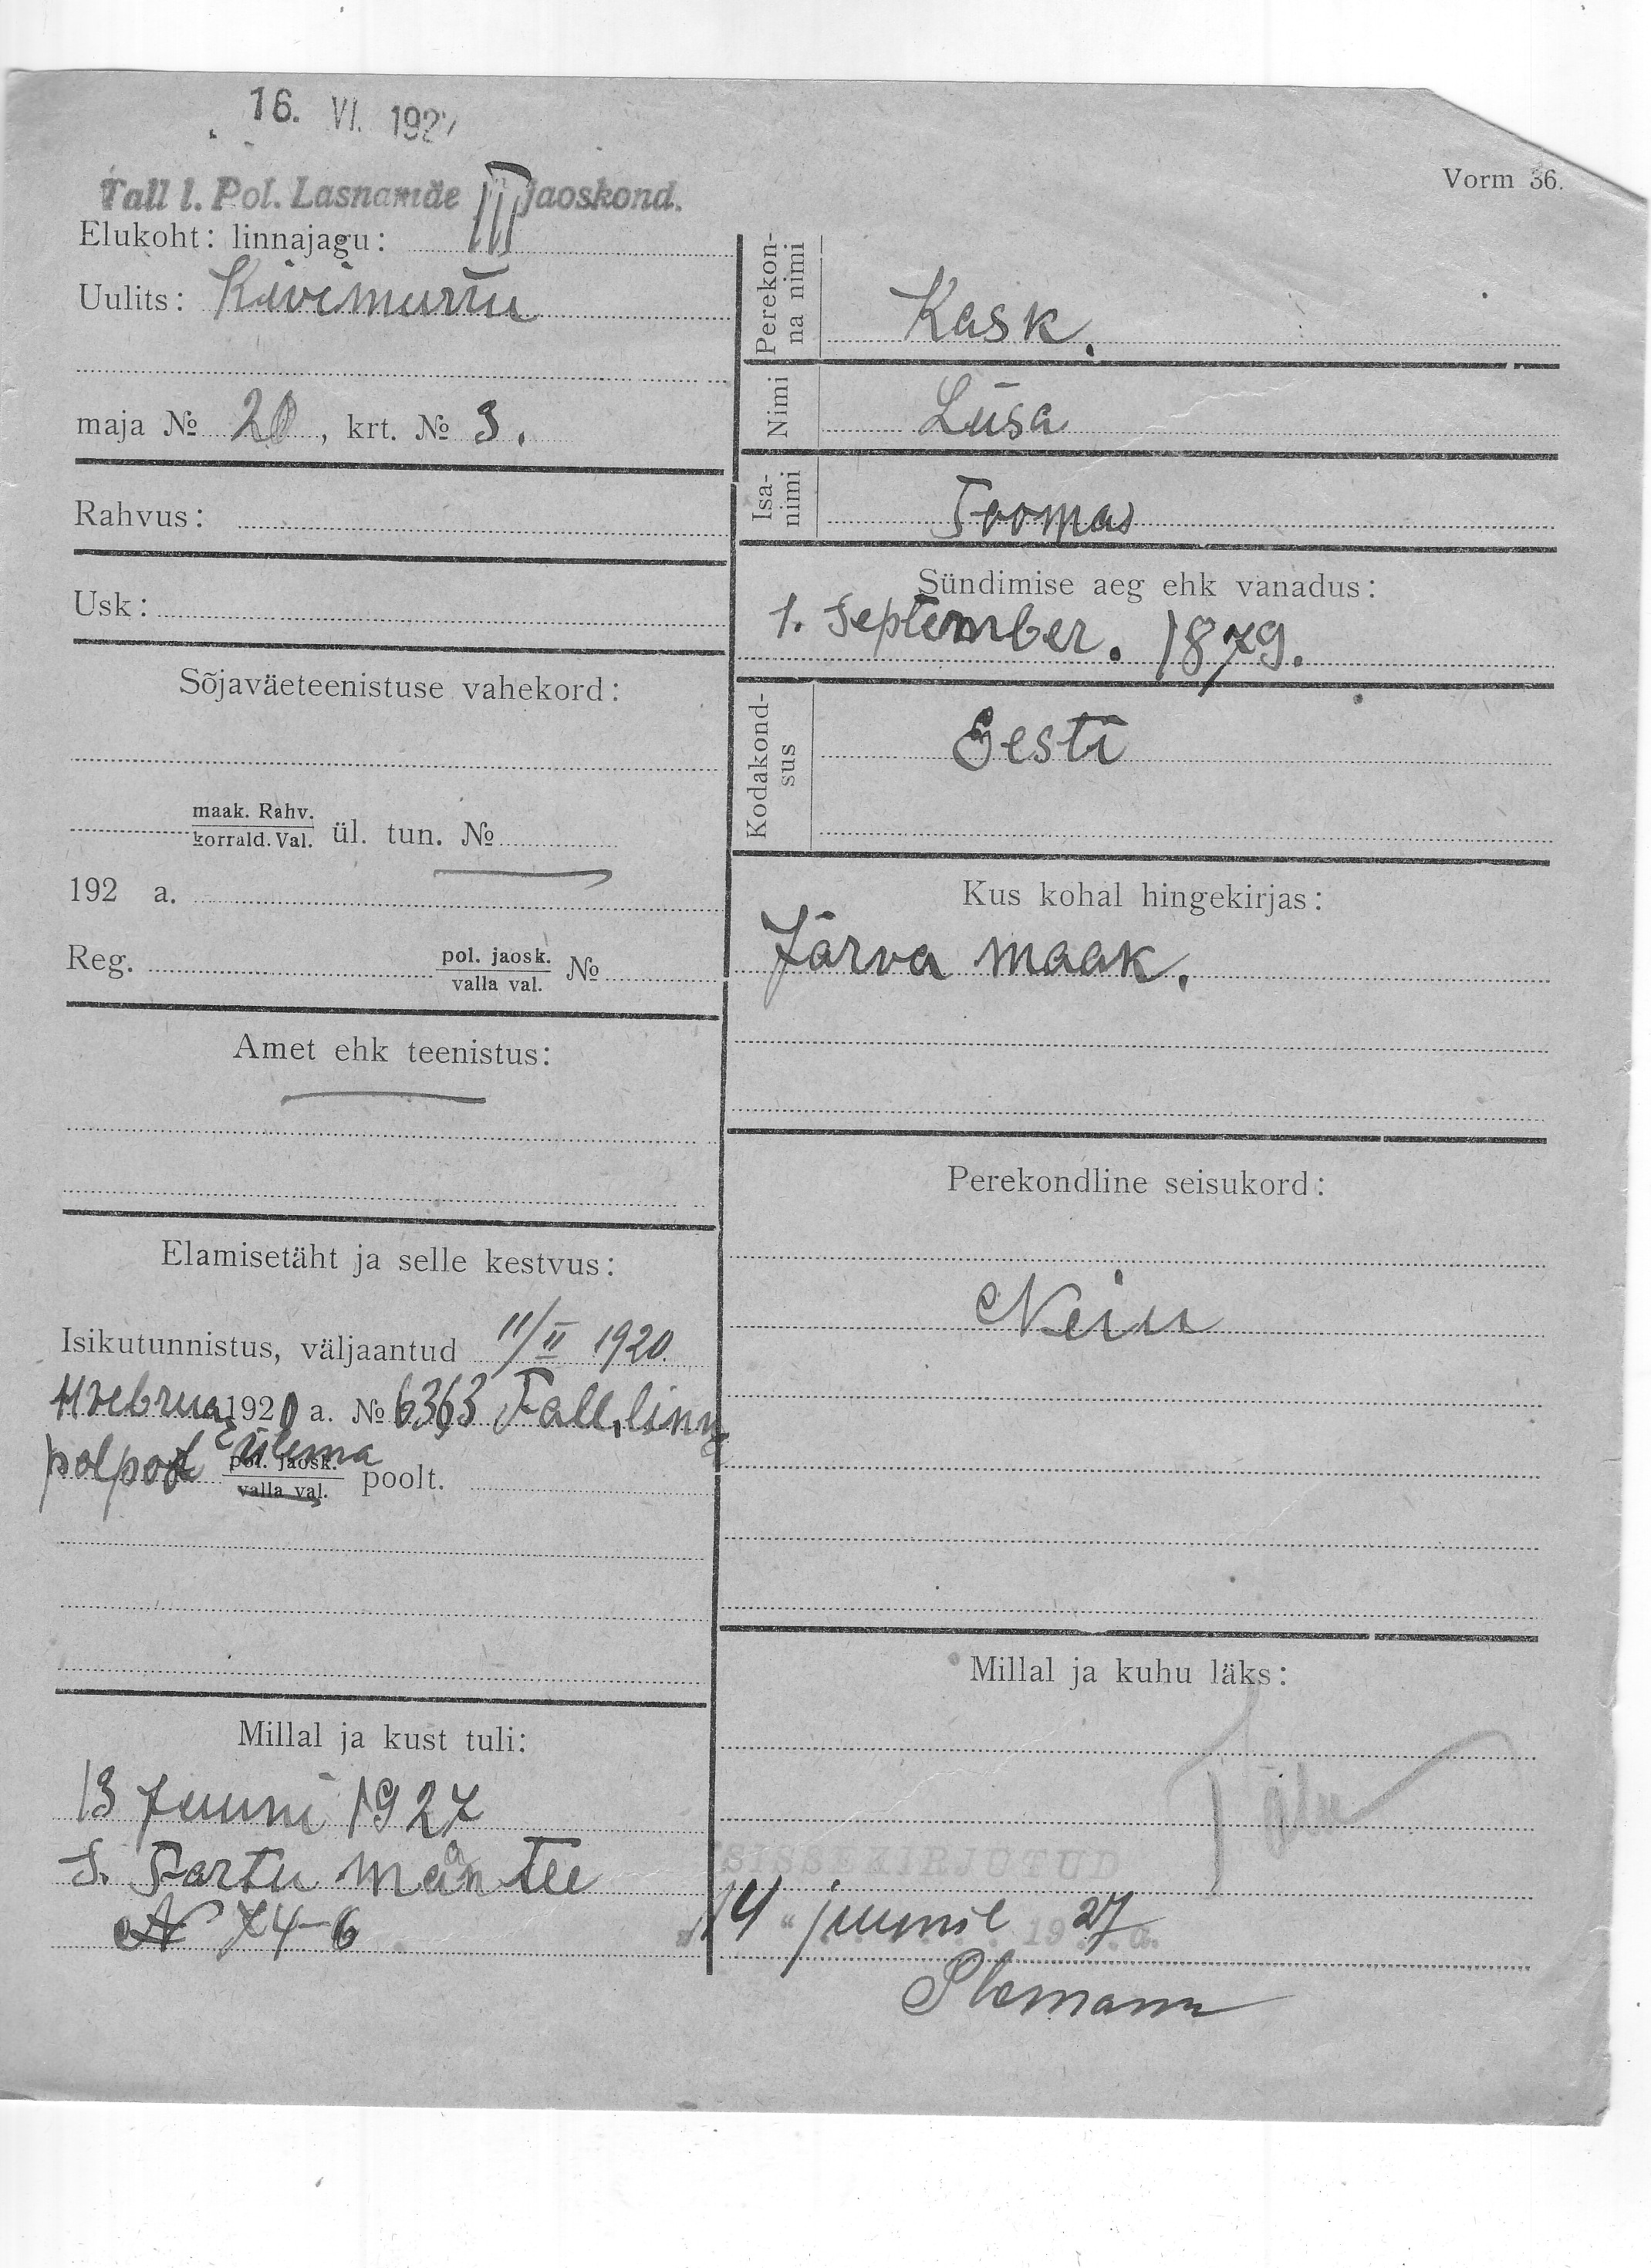 16. VI. 1927
Tall l. Pol. Lasnamäe III jaoskond.
Vorm 36.
Elukoht: linnajagu: III
Uulits: Kivimurru
maja № 20, krt. № 3.
Rahvus:
Usk:
Sõjaväeteenistuse vahekord:
maak. Rahv.
korrald. Val. ül. tun. №
192 a.
Reg. pol. jaosk. №
valla val.
Amet ehk teenistus:
Elamisetäht ja selle kestvus:
Isikutunnistus, väljaantud 11/II 1920.
1920 a. № 6363 Tall. linn
ülema
pol. jaosk. poolt.
valla val.
Millal ja kust tuli:
13 Juuni 1927
S. Tartu maantee
N 74-6
Perekon-
na nimi
Kask.
Nimi
Liisa
Isa-
nimi
Toomas
Sündimise aeg ehk vanadus:
1. September. 1879.
Kodakond-
sus
Eesti
Kus kohal hingekirjas:
Järva maak.
Perekondline seisukord:
Neiu
Millal ja kuhu läks:
SISSEKIRJUTUD
"14" juunil 1927 a.